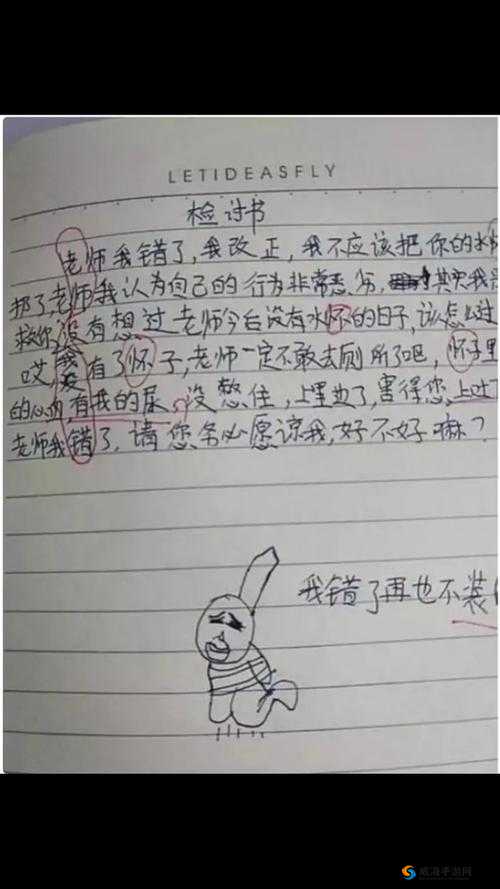 LETIDEASFLY
检讨书
老师我错了,我改正,我不应该把你的水
扔了,老师我认为自己的行为非常恶劣,其实我是
救你,没有想过老师今后没有水怀的日子,该怎么过
哎,我有了怀子,老师一定不敢去厕所了吧,怀子里
的心内有我的尿,没憋住,上里边了,害得您上吐
老师我错了,请您务必愿谅我,好不好嘛?
我错了再也不装
威海手游网